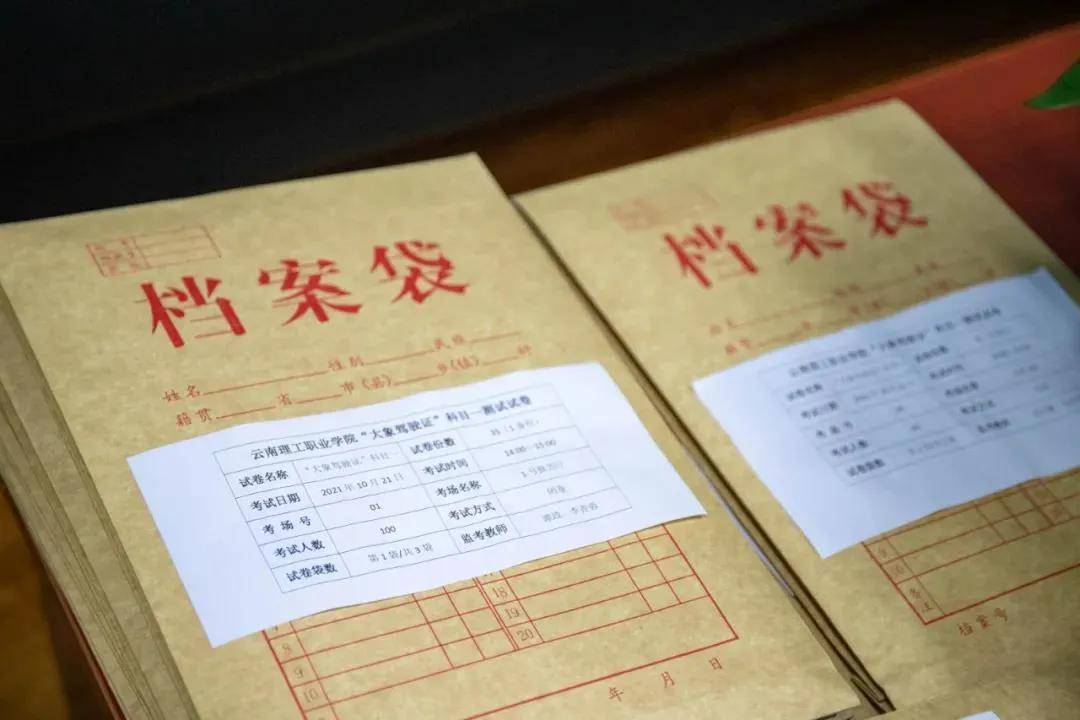 档案袋
姓名 性别 民族
籍贯 省 市(县) 乡(镇) 村
云南理工职业学院“大象驾驶证”科目一测试试卷
试卷名称 “大象驾驶证”科目一 试卷份数
考试日期 2021年10月21日 考试时间 14:00--15:00
考场号 01 考场名称
考试人数 100 考试方式 闭卷
试卷袋数 第1袋/共3袋 监考教师
8 18
9 19
10 20
年 月 日
档案袋
云南理工职业学院“大象驾驶证”科目一测试试卷
试卷名称 试卷份数
考试日期 考试时间
考场号 考场名称
考试人数 考试方式
试卷袋数 监考教师
9
10
备注
档案号